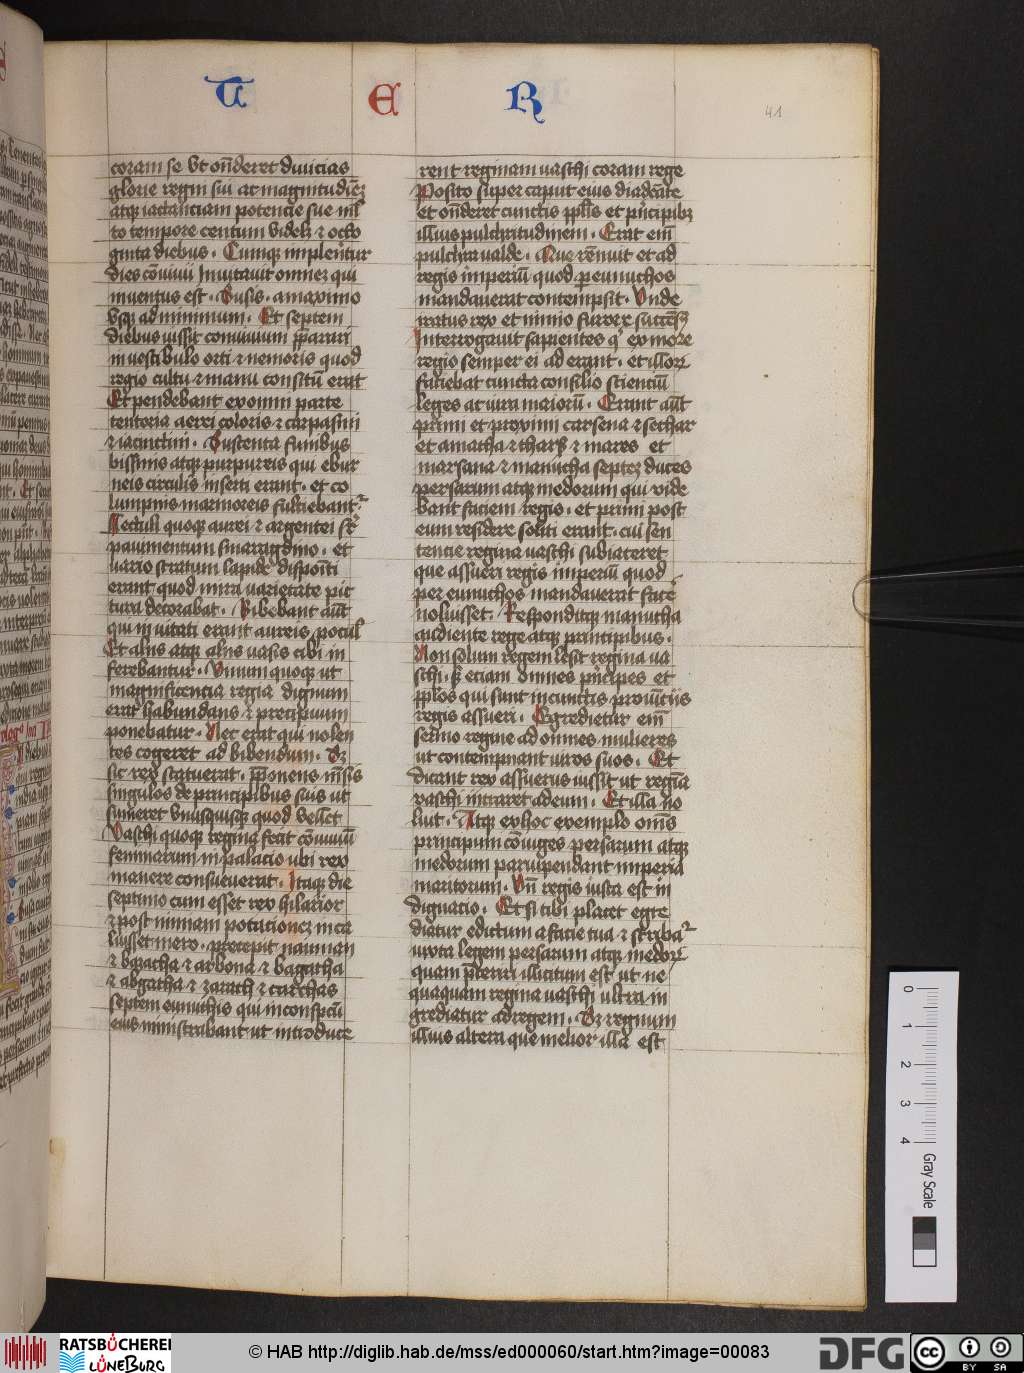 T E R
41
coram se vt on̄deret diuicias
glorie regni sui ac magnitudinē
atqꝫ iactanciam potencie sue ml̄
to tempore centum videlꝫ ⁊ octo
ginta diebus . Cumqꝫ implerētur
dies cōuiuii Inuitauit omneꝫ qui
inuentus est . Susis . a maximo
vsqꝫ ad minimum . Et septem
diebus iussit conuiuium p̄parari
in vestibulo orti ⁊ nemoris quod
regio cultu ⁊ manu consitū erat
Et pendebant ex omni parte
tentoria aerei coloris ⁊ carpasini
⁊ iacinctini . Sustenta funibus
bissinis atqꝫ purpureis qui ebur
neis circulis inserti erant . et co
lumpnis marmoreis fulciebantᷣ
Lectuli quoqꝫ aurei ⁊ argentei sr̄
pauimentum smaragdino . et
uario stratum lapide dispositi
erant quod mira uarietate pic
tura decorabat . Bibebant aūt
qui inuitati erant aureis pocul
Et aliis atqꝫ aliis uasis cibi in
ferebantur . Uinum quoqꝫ ut
magnificencia regia dignum
erat habundans ⁊ precipuum
ponebatur . Nec erat qui nolen
tes cogeret ad bibendum . Sꝫ
sic rex statuerat . p̄ponens mēsis
singulos de principibus suis ut
sumeret vnusquisqꝫ quod vellet
Vasthi quoqꝫ regina fecit cōuiuiū
feminarum in palacio ubi rex
manere consueuerat . Itaqꝫ die
septimo cum esset rex hilarior
⁊ post nimiam potacionez inca
luisset mero . precepit nauman
⁊ bazatha ⁊ arbona ⁊ bagatha
⁊ abgatha ⁊ zarath ⁊ carchas
septem eunuchis qui in conspcū
eius ministrabant ut introduce
rent reginam uasthi coram rege
Posito super caput eius diademate
et on̄deret cunctis pp̄lis et pͥncipibꝫ
illius pulchritudinem . Erat em̄
pulchra ualde . Que rēnuit et ad
regis imperiū quod per eunuchos
mandauerat contempsit . Vnde
iratus rex et nimio furore succēsꝫ
Interrogauit sapientes qͥ ex more
regio semper ei ad erant . et illoꝝ
faciebat cuncta consilio scienciū
leges ac iura maiorū . Erant aūt
primi et proximi carsena ⁊ sethar
et amatha ⁊ tharsꝫ ⁊ mares et
marsana ⁊ manucha septeꝫ duces
persarum atqꝫ medorum qui vide
bant faciem regis . et primi post
eum residere soliti erant . cui sen
tencie regina uasthi subiaceret
que assueri regis imperiū quod
per eunuchos mandauerat facē
noluisset . Responditqꝫ manucha
audiente rege atqꝫ principibus .
Non solum regem lesit regina ua
sthi . sꝫ etiam omnes pͥncipes et
pp̄los qui sunt in cunctis prouīciis
regis assueri . Egredietur em̄
sermo regine ad omnes mulieres
ut contempnant uiros suos . Et
dicant rex assuerus iussit ut regīa
vasthi intraret ad eum . Et illa no
luit . Atqꝫ ex hoc exemplo om̄s
principum cōiuges persarum atqꝫ
medorum paruipendant imperia
maritorum . Vn̄ regis iusta est in
dignacio . Et si tibi placet egre
diatur edictum a facie tua ⁊ scribaᷣ
iuxta legem persarum atqꝫ medoꝝ
quam p̄teriri illicitum est ut ne
quaquam regina uasthi ultra in
grediatur ad regem . Sꝫ regnum
illius altera que melior illa est
0
1
2
3
4
Gray Scale
RATSBÜCHEREI
LÜNEBURG
© HAB http://diglib.hab.de/mss/ed000060/start.htm?image=00083
DFG
CC BY SA